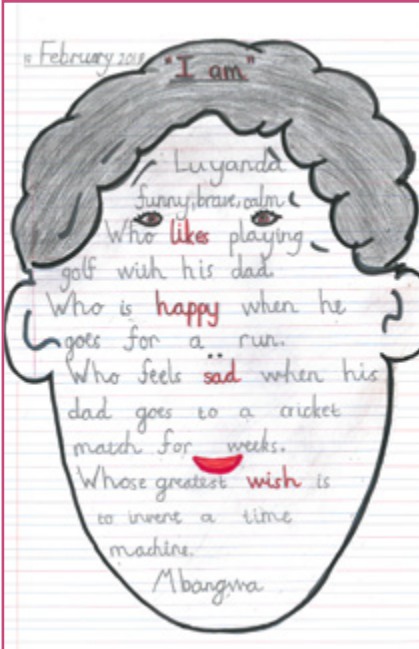 February
"I am"
Luyanda
funny, brave, calm
Who likes playing
golf with his dad.
Who is happy when he
goes for a run.
Who feels sad when his
dad goes to a cricket
match for weeks.
Whose greatest wish is
to invent a time
machine.
Mbangwa